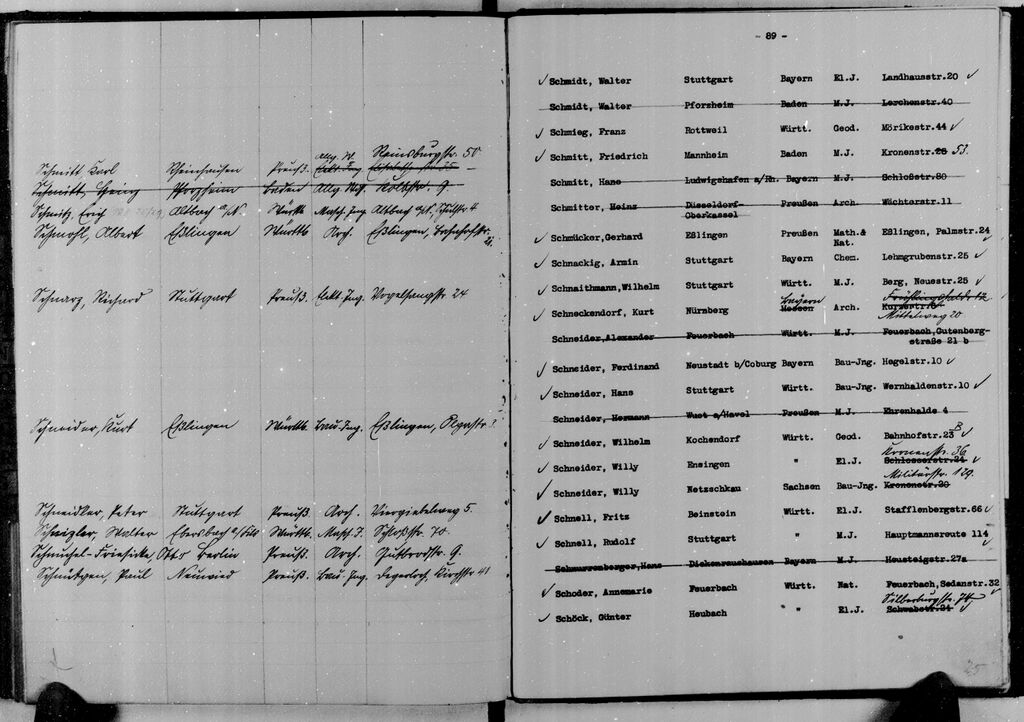 Schmitt Karl Rheinhausen Preuß. Allg. W. Reinsburgstr. 50
Schmitt, Heinz Pforzheim Baden Allg. Wiss. Holzstr. 9
Schmitz, Erich Altbach a/N. Württb Masch. Ing Altbach a/N., Schulstr 4
Schmohl, Albert Eßlingen Württb Arch. Eßlingen, Bahnhofstr.
Schnarz, Richard Stuttgart Preuß. Elekt. Ing. Vogelsangstr 24
Schneider, Kurt Eßlingen Württb Bau-Ing. Eßlingen, Olgastr 3
Schneidler, Peter Stuttgart Preuß. Arch. Viergiebelweg 5.
Schneizler, Walter Ebersbach a/Fils Württb. Masch. I. Schloßstr. 70.
Otto Berlin Preuß. Arch. 9.
Schnütgen, Paul Neuwied Preuß. Bau. Ing. Degerloch, Kirchstr 41
- 89 -
✓ Schmidt, Walter Stuttgart Bayern El.J. Landhausstr.20 ✓
Schmidt, Walter Pforzheim Baden M.J. Lerchenstr.40
✓ Schmieg, Franz Rottweil Württ. Geod. Mörikestr.44 ✓
✓ Schmitt, Friedrich Mannheim Baden M.J. Kronenstr.28 53.
Schmitt, Hans Ludwigshafen a/Rh. Bayern M.J. Schloßstr.80
Schmitter, Heinz Düsseldorf- Preußen Arch. Wächterstr.11
Oberkassel
✓ Schmücker,Gerhard Eßlingen Preußen Math.& Eßlingen, Palmstr.24 ✓
Nat.
✓ Schnackig, Armin Stuttgart Bayern Chem. Lehmgrubenstr.25 ✓
✓ Schnaithmann,Wilhelm Stuttgart Württ. M.J. Berg, Neuestr.25 ✓
Bayern
✓ Schneckendorf, Kurt Nürnberg Hessen Arch. Kurzestr.
Mittelweg 20
Schneider,Alexander Feuerbach Württ. M.J. Feuerbach,Gutenberg-
straße 21 b
✓ Schneider, Ferdinand Neustadt b/Coburg Bayern Bau-Jng. Hegelstr.10 ✓
✓ Schneider, Hans Stuttgart Württ. Bau-Jng. Wernhaldenstr.10 ✓
Schneider, Hermann Wust a/Havel Preußen M.J. Ehrenhalde 4
✓ Schneider, Wilhelm Kochendorf Württ. Geod. Bahnhofstr.23 B ✓
Kronenstr. 36
✓ Schneider, Willy Ensingen " El.J. Schlosserstr.24 ✓
Militärstr. 129.
✓ Schneider, Willy Netzschkau Sachsen Bau-Jng. Kronenstr.20
✓ Schnell, Fritz Beinstein Württ. El.J. Stafflenbergstr.66 ✓
✓ Schnell, Rudolf Stuttgart " M.J. Hauptmannsreute 114 ✓
Schnurrenberger,Hans Dickenreushausen Bayern M.J. Heusteigstr.27a
✓ Schoder, Annemarie Feuerbach Württ. Nat. Feuerbach,Sedanstr.32 ✓
Silberburgstr. 74
✓ Schöck, Günter Heubach " " El.J. Schwabstr.24 ✓
25